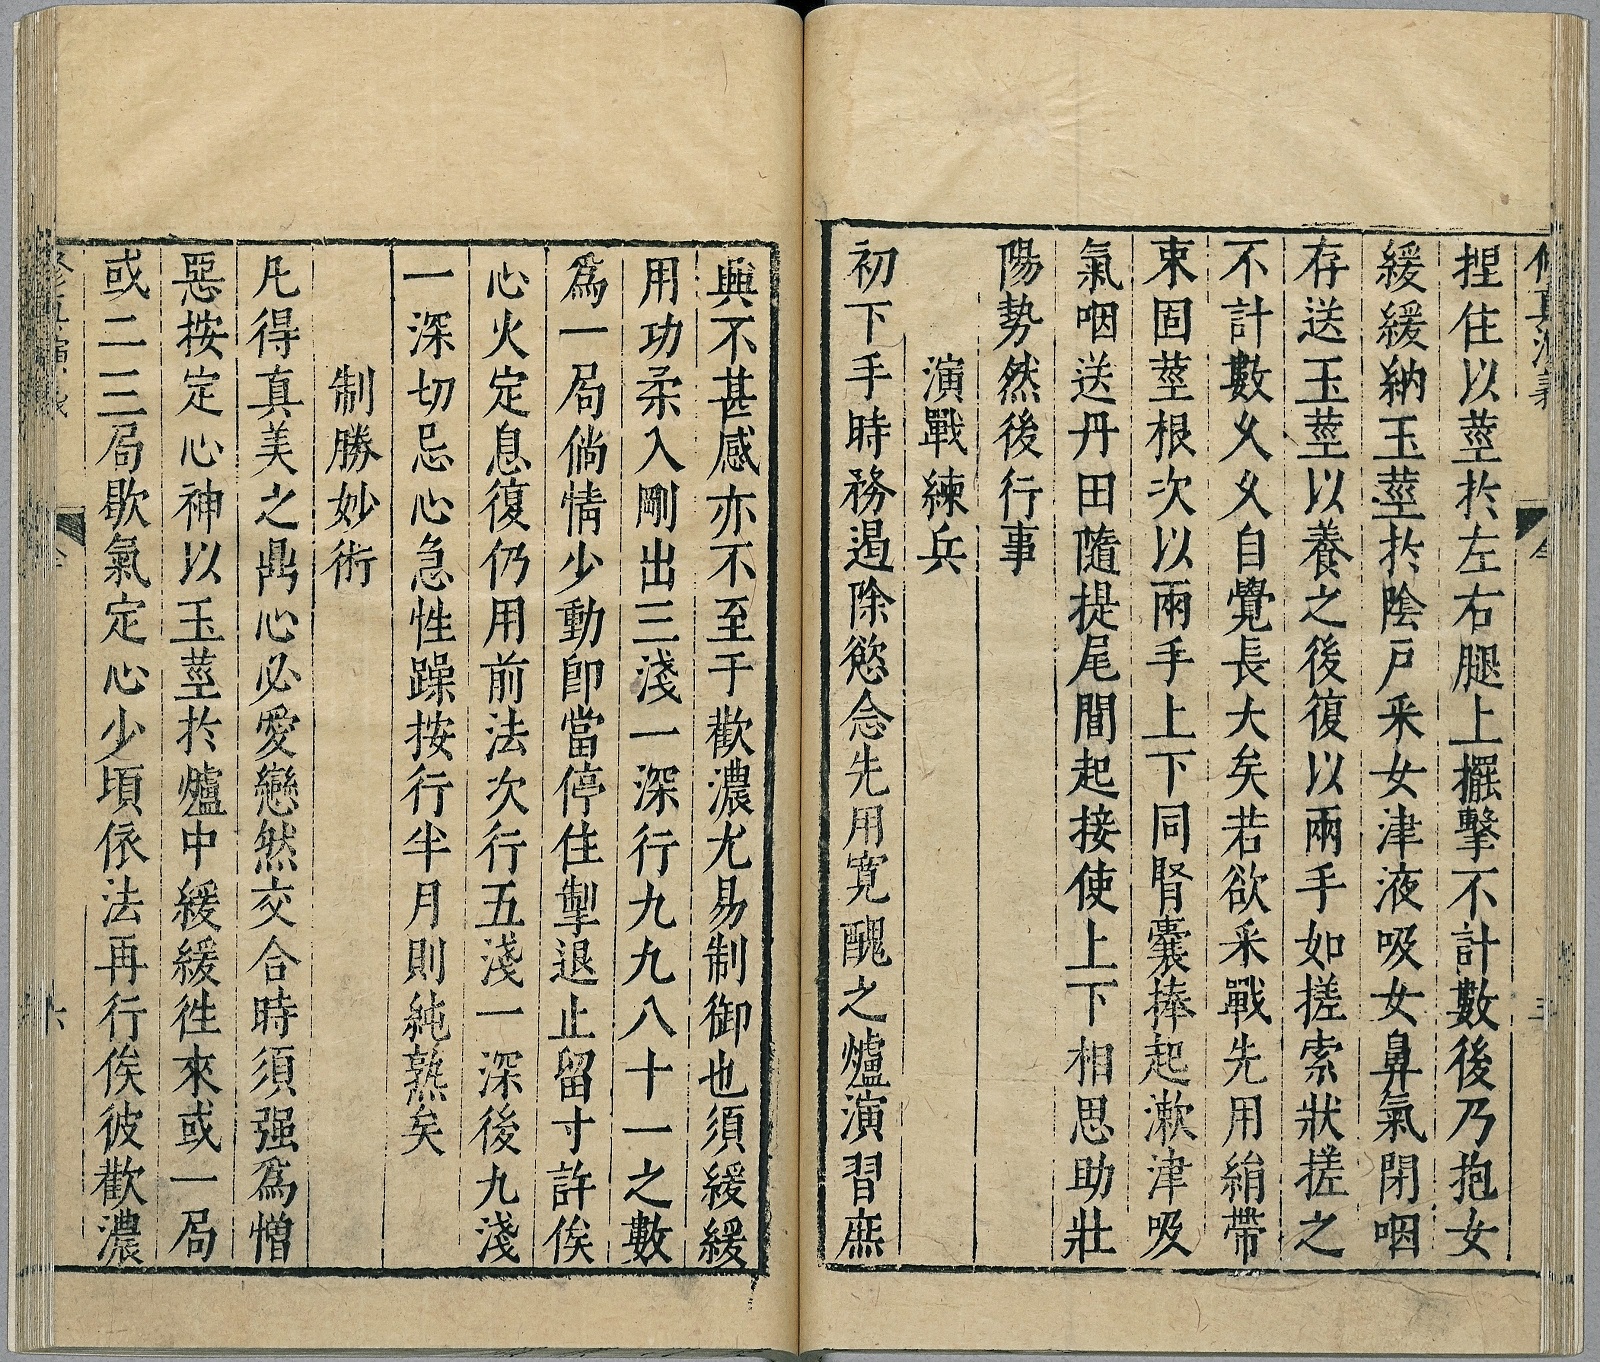 修真演義
捏住以莖於左右腿上擺擊不計數後乃抱女
緩緩納玉莖於陰戶采女津液吸女鼻氣閉咽
存送玉莖以養之後復以兩手如搓索狀搓之
不計數久久自覺長大矣若欲采戰先用絹帶
束固莖根次以兩手上下同腎囊捧起漱津吸
氣咽送丹田隨提尾閭起接使上下相思助壯
陽勢然後行事
演戰練兵
初下手時務遏除慾念先用寬醜之爐演習庶
興不甚感亦不至于歡濃尤易制御也須緩緩
用功柔入剛出三淺一深行九九八十一之數
為一局倘情少動即當停住掣退止留寸許俟
心火定息復仍用前法次行五淺一深後九淺
一深切忌心急性躁按行半月則純熟矣
制勝妙術
凡得真美之鼎心必愛戀然交合時須强為憎
惡按定心神以玉莖於爐中緩緩徃來或一局
或二三局歇氣定心少頃依法再行俟彼歡濃